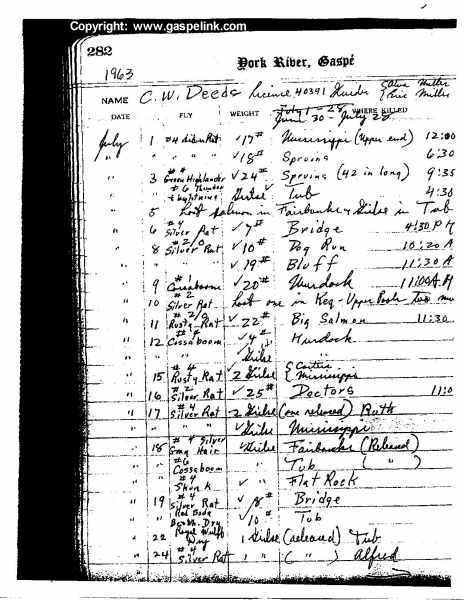 Copyright: www.gaspelink.com
282
York River, Gaspé
1963
NAME C. W. Deeds License 40391 Guides
DATE FLY WEIGHT WHERE KILLED
June 30 - July 28
July 1 #4 Silver Rat ✓17# Mississippi (Upper end) 12:00
" " " " ✓18# Spruins 6:30
" 3 #4 Green Highlander ✓24# Spruins (42 in long) 9:35
#6 Thunder & Lightning Grilse Tub 4:30
" 5 Lost salmon in Fairbanks & Grilse in Tub
" 6 #4 Silver Rat ✓7# Bridge 4:30 PM
" 8 #2/0 Silver Rat ✓10# Dog Run 10:20 A
✓19# Bluff 11:30 A
" 9 #1 Cossaboom ✓20# Murdock 11:00 A M
" 10 #2 Silver Rat Lost one in Keg - Upper Pools
" 11 #2/0 Rusty Rat ✓22# Big Salmon 11:30
" 12 #4 Cossaboom Murdock
✓ Grilse
" 15 #4 Rusty Rat 2 Grilse { Carter
{ Mississippi
" 16 #2 Silver Rat ✓25# Doctors 11:0
" 17 #4 Silver Rat 2 Grilse (one released) Ruth
" ✓ Grilse Mississippi
" 18 #4 Silver Gray Hair ✓ Grilse Fairbanks (Released)
" #6 Cossaboom " Tub ( " )
" #4 Skunk ✓ " Flat Rock
" 19 #4 Silver Rat ✓8# Bridge
" Red Body Dry ✓10# Tub
" 22 Royal Wulff Dry 1 Grilse (released) Tub
" 24 #4 Silver Rat 1 " ( " ) Alfred